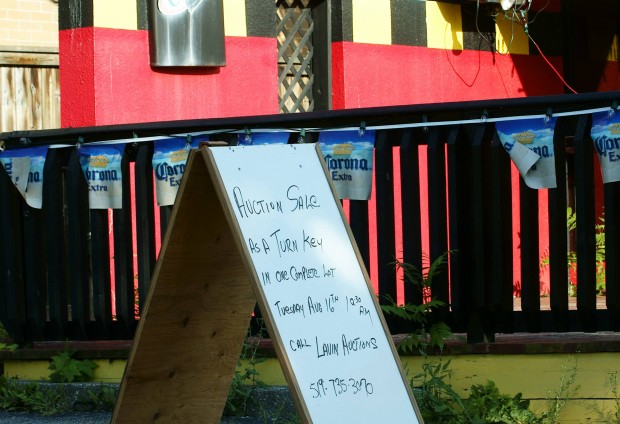 Corona
Extra
Corona
Extra
Corona
Extra
Corona
Extra
AUCTION SALE
AS A TURN KEY
IN ONE COMPLETE LOT
TUESDAY AUG 16TH 10:30
AM
CALL LAVIN AUCTIONS
519-735-3070